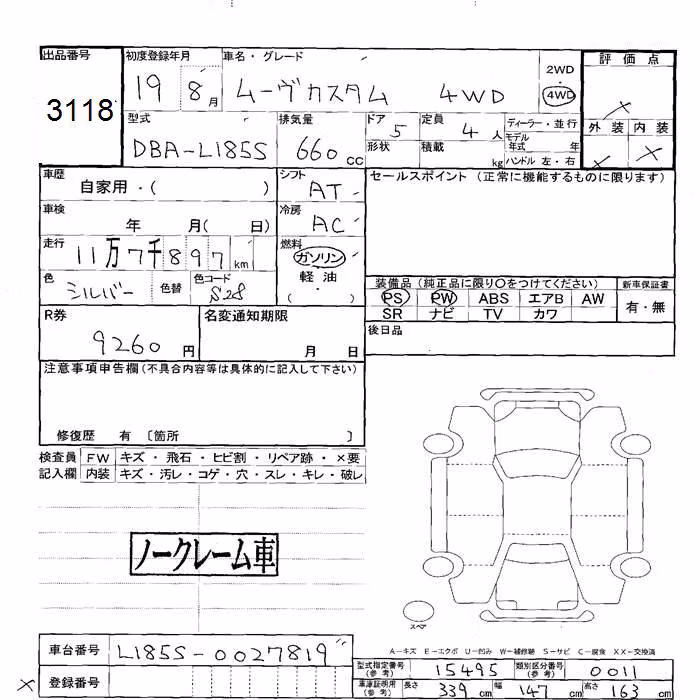 出品番号 初度登録年月 車名・グレード 2WD 評価点
3118 19 8月 ムーヴカスタム 4WD 4WD
型式 排気量 ドア 定員 ディーラー・並行 外装 内装
DBA-L185S 660cc 5 4人 モデル年式 年
形状 積載 kg ハンドル 左・右
車歴 シフト セールスポイント(正常に機能するものに限ります)
自家用・( ) AT
車検 冷房
年 月( 日) AC
走行 燃料
11万7千897km ガソリン
色 色替 色コード 軽油
シルバー S28 ( ・ )
装備品(純正品に限り○をつけてください) 新車保証書
PS PW ABS エアB AW 有・無
SR ナビ TV カワ
R券 名変通知期限 後日品
9260円 月 日
注意事項申告欄(不具合内容等は具体的に記入して下さい)
修復歴 有 〔箇所 〕
検査員 FW キズ・飛石・ヒビ割・リペア跡・×要
記入欄 内装 キズ・汚レ・コゲ・穴・スレ・キレ・破レ
ノークレーム車
スペア
A-キズ E-エクボ U-凹み W-補修跡 S-サビ C-腐食 XX-交換済
車台番号 L185S-0027819
型式指定番号(参考) 15495 類別区分番号(参考) 0011
登録番号
車庫証明用(参考) 長さ 339cm 幅 147cm 高さ 163cm